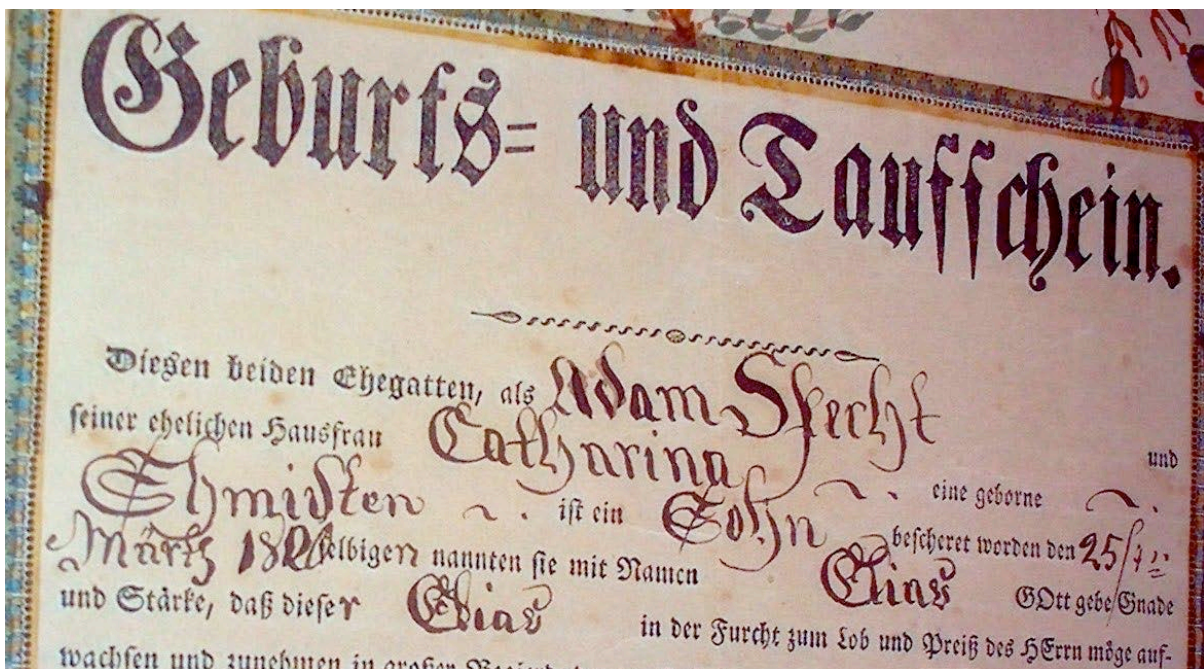 Geburts- und Taufschein.
Diesen beiden Ehegatten, als Adam Specht und
seiner ehelichen Hausfrau Catharina eine geborne
Schmidten ist ein Sohn bescheret worden den 25
Märtz selbigen nannten sie mit Namen Elias GOtt gebe Gnade
und Stärke, daß dieser Elias in der Furcht zum Lob und Preiß des HErrn möge auf-
wachsen und zunehmen in großer